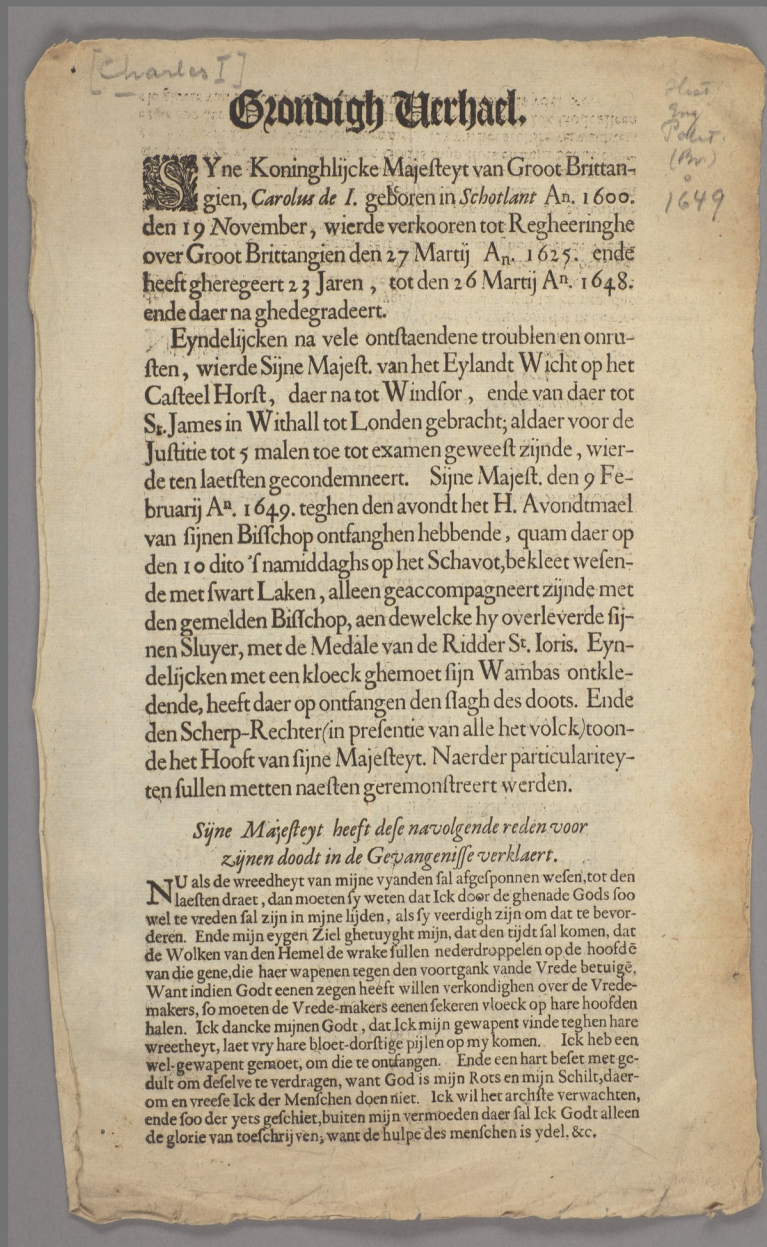 [Charles I]
Grondigh Verhael.
Hist
Eng
Polit.
(Br)
1649
SYne Koninghlijcke Majeſteyt van Groot Brittan-
gien, Carolus de I. geboren in Schotlant An. 1600.
den 19 November, wierde verkooren tot Regheeringhe
over Groot Brittangien den 27 Martij An. 1625. ende
heeft gheregeert 23 Jaren, tot den 26 Martij An. 1648.
ende daer na ghedegradeert.
Eyndelijcken na vele ontſtaendene troublen en onru-
ſten, wierde Sijne Majeſt. van het Eylandt Wicht op het
Caſteel Horſt, daer na tot Windſor, ende van daer tot
St. James in Withall tot Londen gebracht; aldaer voor de
Juſtitie tot 5 malen toe tot examen geweeſt zijnde, wier-
de ten laetſten gecondemneert. Sijne Majeſt. den 9 Fe-
bruarij An. 1649. teghen den avondt het H. Avondtmael
van ſijnen Biſſchop ontfanghen hebbende, quam daer op
den 10 dito 'ſnamiddaghs op het Schavot, bekleet weſen-
de met ſwart Laken, alleen geaccompagneert zijnde met
den gemelden Biſſchop, aen dewelcke hy overleverde ſij-
nen Sluyer, met de Medale van de Ridder St. Ioris. Eyn-
delijcken met een kloeck ghemoet ſijn Wambas ontkle-
dende, heeft daer op ontfangen den ſlagh des doots. Ende
den Scherp-Rechter (in preſentie van alle het volck) toon-
de het Hooft van ſijne Majeſteyt. Naerder particularitey-
ten ſullen metten naeſten geremonſtreert werden.
Sijne Majeſteyt heeft deſe navolgende reden voor
zijnen doodt in de Gevangeniſſe verklaert.
NU als de wreedheyt van mijne vyanden ſal afgeſponnen weſen, tot den
laeſten draet, dan moeten ſy weten dat Ick door de ghenade Gods ſoo
wel te vreden ſal zijn in mjne lijden, als ſy veerdigh zijn om dat te bevor-
deren. Ende mijn eygen Ziel ghetuyght mijn, dat den tijdt ſal komen, dat
de Wolken van den Hemel de wrake ſullen nederdroppelen op de hoofdē
van die gene, die haer wapenen tegen den voortgank vande Vrede betuigē,
Want indien Godt eenen zegen heeft willen verkondighen over de Vrede-
makers, ſo moeten de Vrede-makers eenen ſekeren vloeck op hare hoofden
halen. Ick dancke mijnen Godt, dat Ick mijn gewapent vinde teghen hare
wreetheyt, laet vry hare bloet-dorſtige pijlen op my komen. Ick heb een
wel-gewapent gemoet, om die te ontfangen. Ende een hart beſet met ge-
dult om deſelve te verdragen, want God is mijn Rots en mijn Schilt, daer-
om en vreeſe Ick der Menſchen doen niet. Ick wil het archſte verwachten,
ende ſoo der yets geſchiet, buiten mijn vermoeden daer ſal Ick Godt alleen
de glorie van toeſchrijven; want de hulpe des menſchen is ydel. &c.